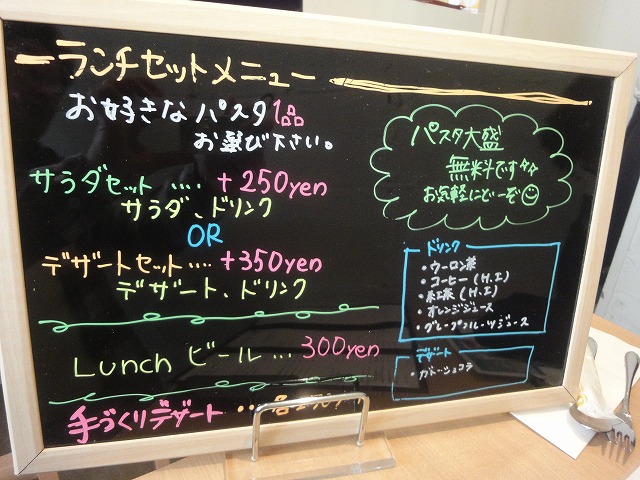 ランチセットメニュー
お好きなパスタ1品
お選び下さい。
サラダセット …. +250yen
サラダ、ドリンク
OR
デザートセット…. +350yen
デザート、ドリンク
Lunch ビール … 300yen
手づくりデザート …
パスタ大盛
無料です
お気軽にどーぞ
ドリンク
・ウーロン茶
・コーヒー(H.I)
・紅茶(H.I)
・オレンジジュース
・グレープフルーツジュース
デザート
・ガトーショコラ